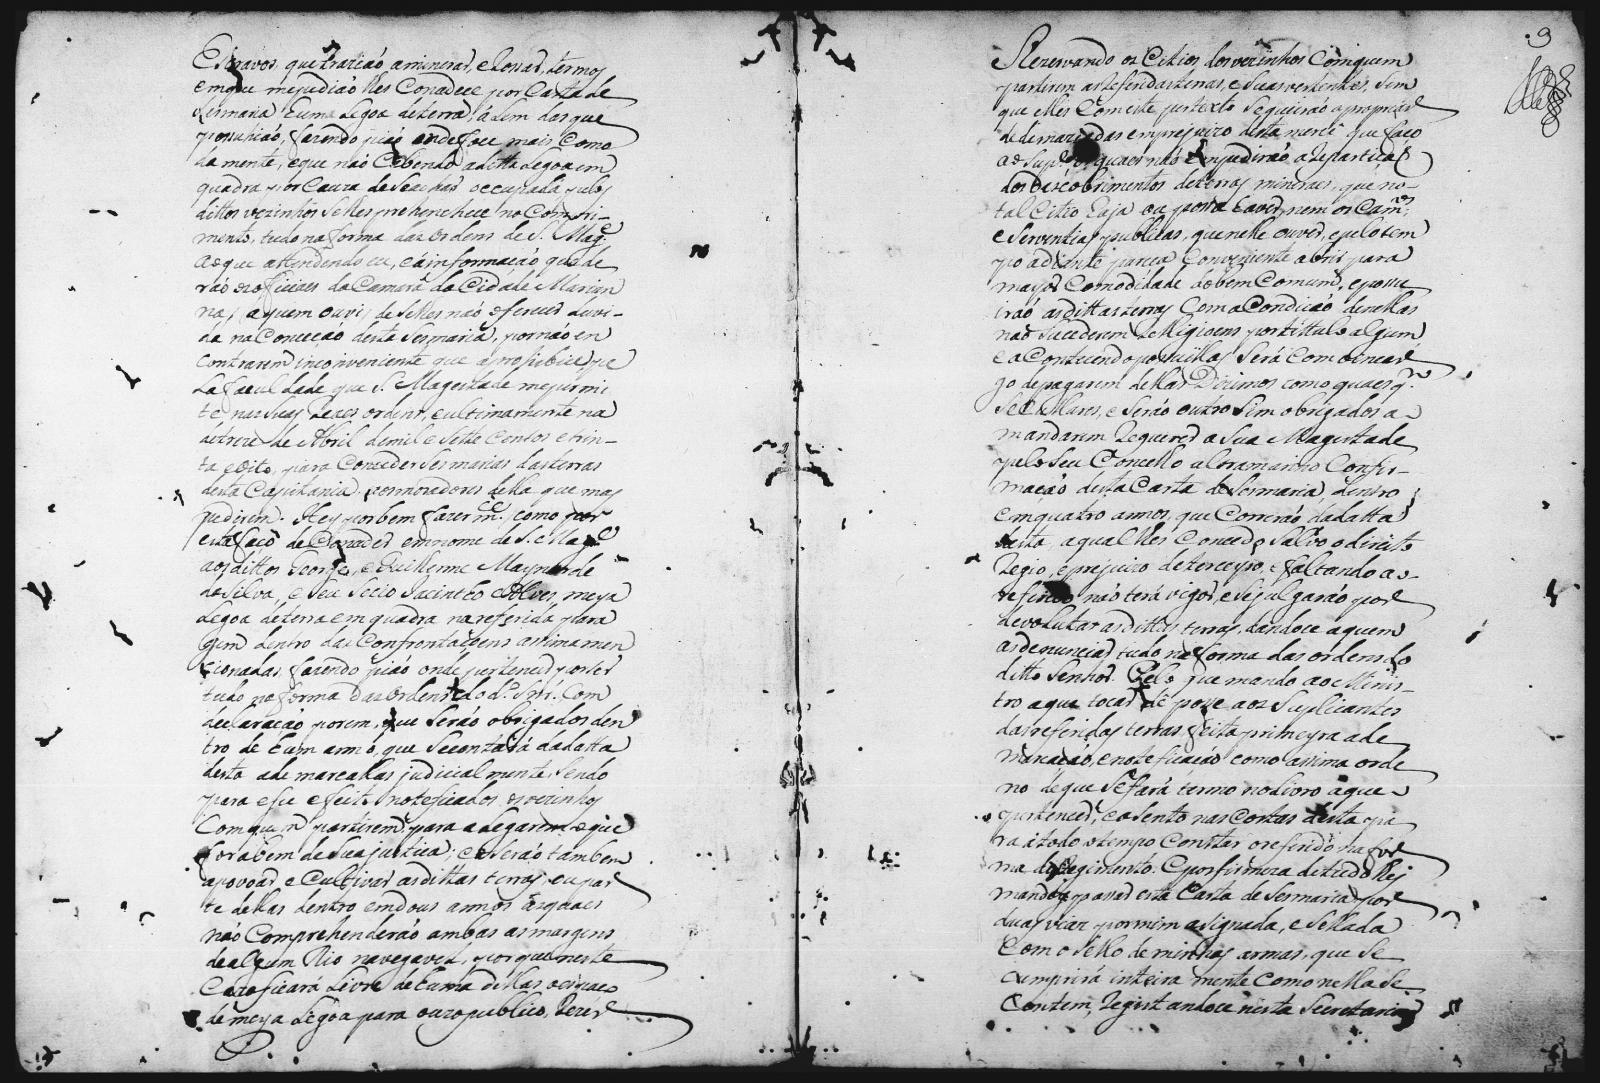 Escravos, que trazião a minerar, e rossar, termos
em que me pedião lhes Concedece por Carta de
Sesmaria huma Legoa de terra, alem das que
possuhião, fazendo pião onde fose mais Como
da mente, e que não Cabendo a ditta Legoa em
quadra por Cauza de se achar occupada pelos
dittos vezinhos se lhes prehenchece no Compri-
mento, tudo na forma das ordens de S. Mag.e
Ao que attendendo eu, e á informação que de
rão os oficiaes da Camara da Cidade Marian
na, a quem ouvi, de se lhes não oferecer duvi-
da na Conceção desta Sesmaria, por não en
contrarem inconveniente que a prohibice, pe
la faculdade que S. Magestade me permi
te nas suas Reaes ordens, e ultimamente na
de treze de Abril de mil e Sette Centos e trin-
ta e oito, para Conceder Sesmarias das terras
desta Capitania aos moradores della que mas
pedirem. Hey por bem fazer m.ce, como por
esta faço de Conceder em nome de S. Mag.e
aos dittos George, e Guilherme Maynarde
da Silva, e Seu Socio Jacintho Alves, meya
Legoa de terra em quadra na referida para
gem dentro das Confrontaçoens asima men
cionadas, fazendo pião onde pertencer por ser
tudo na forma das ordens do d.o Snr. Com
declaração porem, que serão obrigados den
tro de hum anno, que Se contará da datta
desta a demarcallas judicialmente, Sendo
para esse efeito noteficados os vezinhos
Com quem partirem, para alegarem o que
for a bem de Sua justiça; e o serão tambem
a povoar, e Cultivar as dittas terras, ou par
te dellas dentro em dous annos, as quaes
não Comprehenderão ambas as margens
de algum Rio navegavel, porque neste
Cazo ficará Livre de huma dellas o espaço
de meya Legoa para o uzo publico, Rezer
9
Rezervando os Citios dos vezinhos Com quem
partirem as referidas terras, e Suas vertentes, Sem
que elles Com este pertexto Se queirão apropriar
de demarcadas em prejuizo desta mercê que faço
aos Sup.tes os quaes não empedirão a Repartição
dos descobrimentos de terras mineraes, que no
tal Citio haja ou possa haver, nem os Cam.os
e Serventias publicas, que nelle ouver, e pelo tem
po adiante pareça Conveniente abrir para
mayor Comodidade do bem Comum, e possu
irão as dittas terras Com a Condição de nellas
não Sucederem Religioens por tittulo algum
e acontecendo possuillas Será Com o encar
go de pagarem dellas Dizimos como quaesq.r
Secullares, e Serão outro Sim obrigados a
mandarem Requerer a Sua Magestade
pelo Seu Concelho Ultramarino Confir-
mação desta Carta de Sesmaria, dentro
em quatro annos, que Correrão da datta
desta, a qual lhes Concedo Salvo o direito
Regio, e prejuizo de terceyro, e faltando ao
referido não terá vigor, e Se julgarão por
devolutas as dittas terras, dandoce a quem
as denunciar tudo na forma das ordens do
ditto Senhor. Pelo que mando ao Minis-
tro a que tocar dê posse aos Suplicantes
das referidas terras, feita primeyro a de
marcação, e noteficação como asima orde
no de que Se fará termo no Livro a que
pertencer, e asento nas Costas desta pa
ra a todo o tempo Constar o referido na for
ma do Regimento. E por firmeza de tudo lhes
mandey passar esta Carta de Sesmaria por
duas vias por mim asignada, e Sellada
Com o Sello de minhas armas, que Se
Cumprirá inteira mente Como nella Se
Contem, Registandoce nesta Secretaria